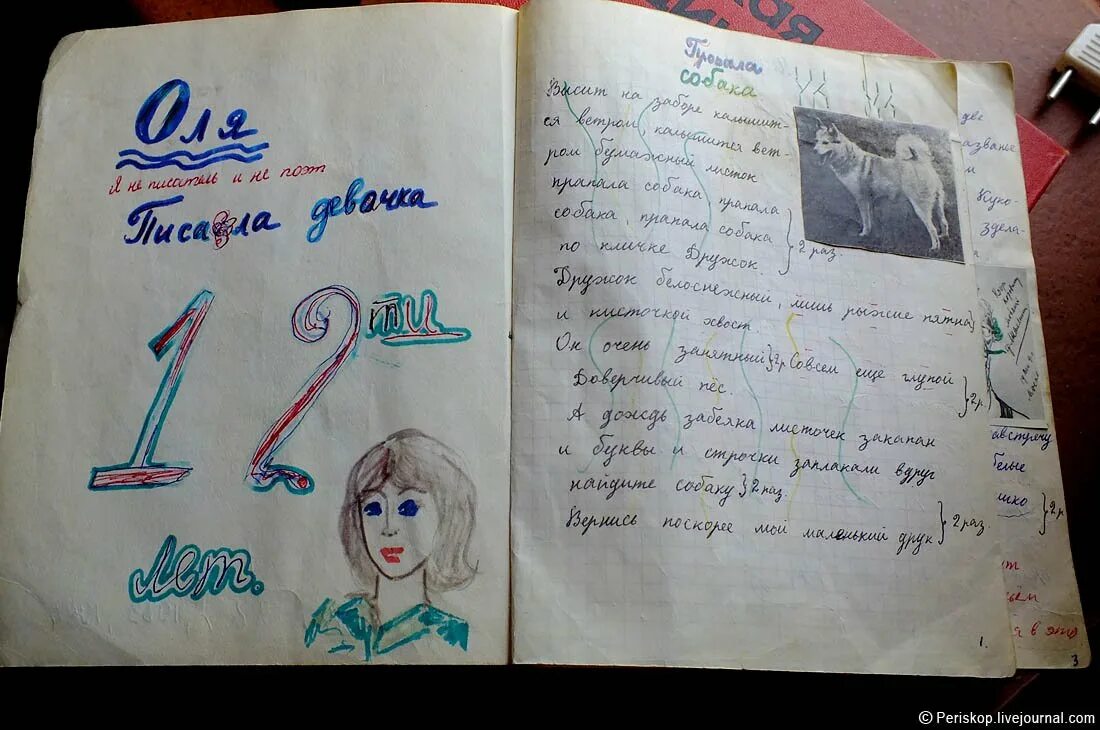 Оля
Я не писатель и не поэт
Писала девочка
12 ти
лет.
Пропала
собака
Висит на заборе калышит-
ся ветром, калышится вет-
ром бумажный листок
прапала собака прапала
собака, прапала собака
по кличке Дружок.
} 2 раз.
Дружок белоснежный, лишь рыжие пятна}
и кисточкой хвост.
Он очень занятный}2р Совсем ещё глупой
Доверчивый пёс.
}2р.
А дождь забеяка листочек закапан
и буквы и строчки заплакали вдруг
найдите собаку}2 раз.
Вернись поскорее мой маленький друк}2 раз.
1.
две
азванье
и
Куко-
здела-
австречу
белые
шко
}2р
я в это
3
© Periskop.livejournal.com